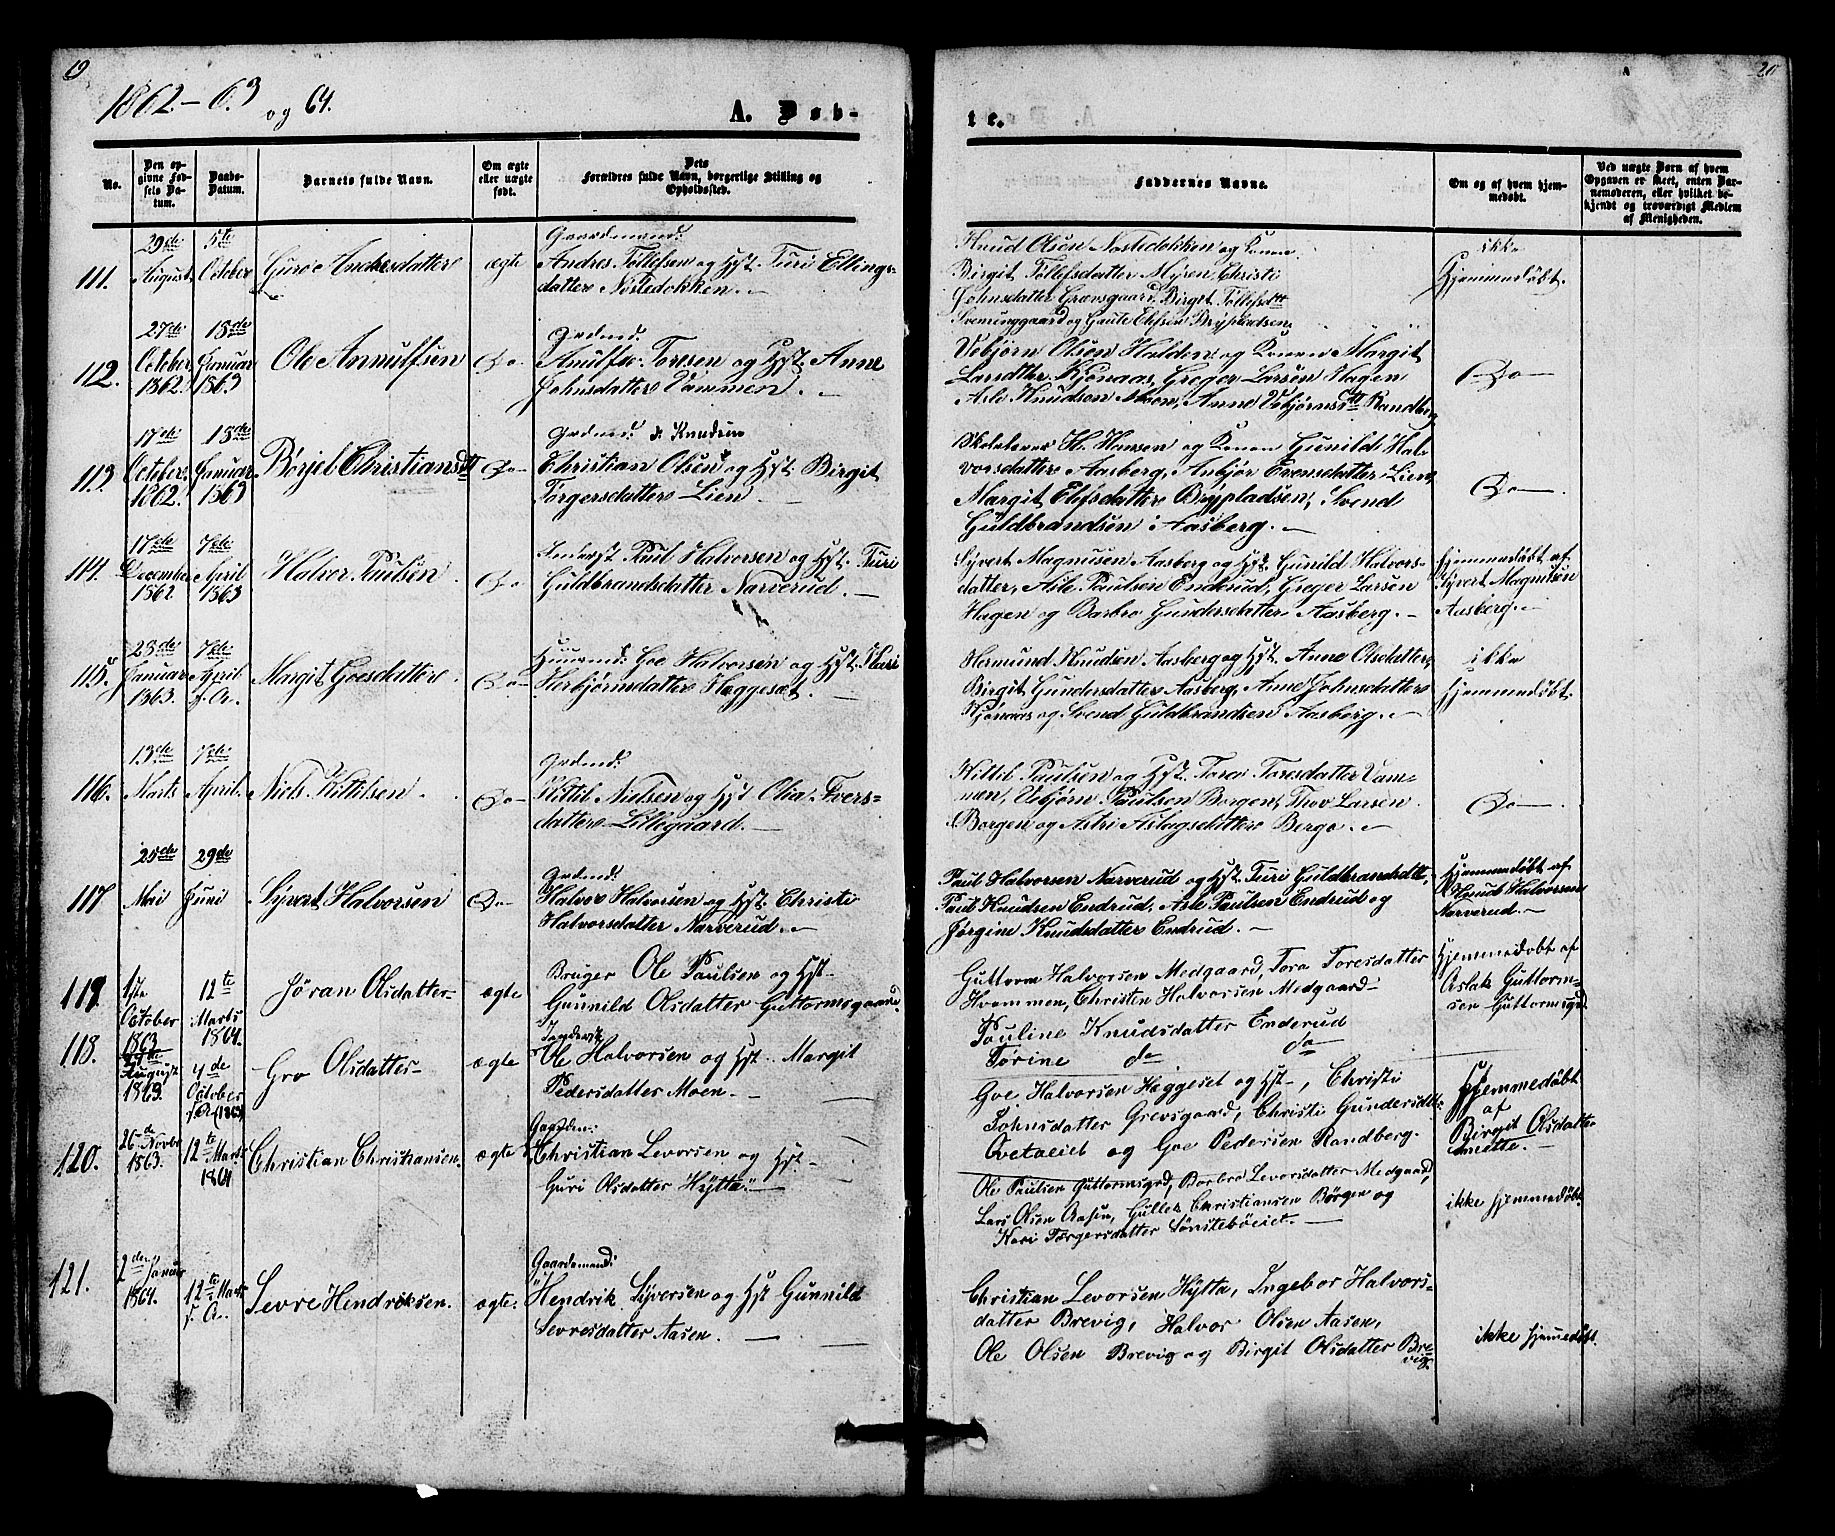 19
20
1862-63 og 64.
A. Døb-
te.
No.
Den op-
givne Fød-
sels Da-
tum.
Daabs-
Datum.
Barnets fulde Navn.
Om ægte
eller uægte
født.
Dets
Forældres fulde Navn, borgerlige Stilling og
Opholdssted.
Faddernes Navne.
Om og af hvem hjem-
medøbt.
Ved uægte Børn af hvem
Opgaven er skeet, enten Bar-
nemoderen, eller hvilket be-
kjendt og troværdigt Medlem
af Menigheden.
111.
29de
August
5te
October
Guroe Andersdatter
ægte
Gaardmand:
Andres Tollefsen og Hst. Turi Ellings-
datter Nøstedokken.
Knud Olsen Nøstedokken og Konen
Birgit Tollefsdatter Myren, Christi
Johnsdatter Grævsgaard, Birget Tollefsdtt
og Gaute Elefsen Brypladsen,
ikke
Hjemmedøbt.
112.
27de
October
1862.
18de
Januar
1863
Ole Arnulfsen
Do
Grdmd:
Toresen og Hst. Anne
Johnsdatter Vammen.
Vebjørn Olsen Halden og Konen Margit
Kjønaas, Greger Larsen Hagen
Asle Knudsen Moen, Anne Vebjørnsdtt Randberg
Do
113.
17de
October
1862.
18de
Januar
1863
Børjel Christiansdtt
Do
Grdmd: d: Knudsen
Christian Olsen og Hst. Birgit
Torgersdatter Lien
H. Hansen og Konen Gunild Hal-
vorsdatter Aasberg, Anbjør Evensdatter Lien,
Margit Elefsdatter Brypladsen, Svend
Guldbrandsen i Aasberg.
Do
114.
17de
December
1862
7de
April
1863
Halvor Paulsen
Do
Paul Halvorsen og Hst. Turi
Guldbrandsdatter Narverud.
Syvert Magnusen Aasberg og Hst. Gunild Halvors-
datter, Asle Paulsen Endrud, Greger Larsen
Hagen og Barbro Gundersdatter Aasberg.
Hjemmedøbt af
Syvert Magnusen
Aasberg.
115.
23de
Januar
1863.
7de
April
f. A.
Margit Goesdatter
Do
Huusmd: Goe Halvorsen og Hst. Kari
Herbjørnsdatter Hæggeset.
Hermund Knudsen Aasberg og Hst. Anne Olsdatter,
Birgit Gundersdatter Aasberg, Anne Johnsdatter
Kjønaas og Svend Guldbrandsen Aasberg.
ikke
hjemmedøbt.
116.
13de
Marts
7de
April.
Niels Kittilsen
Do
Grdmd:
Kittil Nielsen og Hst. Olia Ivers-
datter Lillegaard.
Kittil Paulsen og Hst. Tore Toresdatter Vam-
men, Vebjørn Paulsen Borgen, Thov Larsen
Borgen og Astri Aslagsdatter Berge.
Do
117
25de
Mai
29de
Juni
Syvert Halvorsen
Do
Grdmd:
Halvor Halvorsen og Hst. Christi
Halvorsdatter Narverud.
Paul Halvorsen Narverud og Hst. Turi Guldbrandsdtt,
Paul Knudsen Endrud, Asle Paulsen Endrud og
Jørgine Knudsdatter Endrud.
Hjemmedøbt af
Knud Halvorsen
Narverud.
119.
1ste
October
1863
12te
Marts
1864.
Jøran Olsdatter
ægte
Bruger Ole Paulsen og Hst
Gunnild Olsdatter Guttormsgaard
Guttorm Halvorsen Medgaard, Tora Toresdatter
Hvammen, Christen Halvorsen Medgaard
Pauline Knudsdatter Enderud
Torine do do
Hjemmedøbt af
Aslak Guttorm-
sen Guttormsgrd
118.
August
1863.
4de
October
f. A. (1863)
Gro Olsdatter
ægte
Inderst
Ole Halvorsen og Hst. Margit
Pedersdatter Moen.
Goe Halvorsen Hæggeset og Hst, Christi
Johnsdatter Grevsgaard, Christi Gundersdtt.
og Goe Pedersen Randberg.
Hjemmedøbt
af
Birgit Olsdatter
120.
26de Novbr
1863.
12te Marts
1864
Christian Christiansen.
ægte
Gaardm:
Christian Levorsen og Hst
Guri Olsdatter Hytta.
Ole Paulsen Guttormsgrd, Barbro Levorsdatter Medgaard,
Lars Olsen Aasen, Gullek Christiansen Børgen og
Kari Torgersdatter Sønstebøeiet.
ikke hjemmedøbt
121.
2den Januar
1864.
12te Marts
f. A.
Sevre Hendriksen.
ægte.
Gaardmand:
Hendrik Syversen og Hst Gunnild
Sevresdatter Aasen.
Christian Levorsen Hytta, Ingebor Halvors-
datter Brevig, Halvor Olsen Aasen,
Ole Olsen Brevig og Birgit Olsdatter Bre-
vig.
ikke hjemmedøbt.